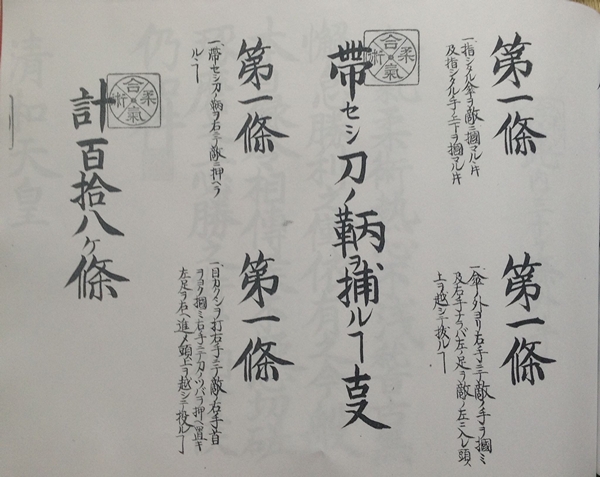 第一條
一、指シタル傘ヲ敵ニ摑マル片
及指シタル手ニテヲ摑マル片
第一條
一、傘ノ外ヨリ右手ニテ敵ノ手ヲ摑ミ
及右手ナラバ左ノ足ヲ敵ノ左ニ入レ頭
上ヲ越シニテ投ルヿ
合氣柔術
帶セシ刀ノ鞆ヲ捕ルヿ
第一條
一、帶セシ刀ノ鞆ヲ右手ニテ敵ニ押ヘラ
ルヽヿ
第一條
一、目カクシヲ打右手ニテ敵右手首
ヲヨク摑ミ右手ニテ刀ノツバヲ押ヘ置キ
左足ヲ右ヘ進メ頭上ヲ越シニテ投ルヿ
合氣柔術
計百拾八ヶ條